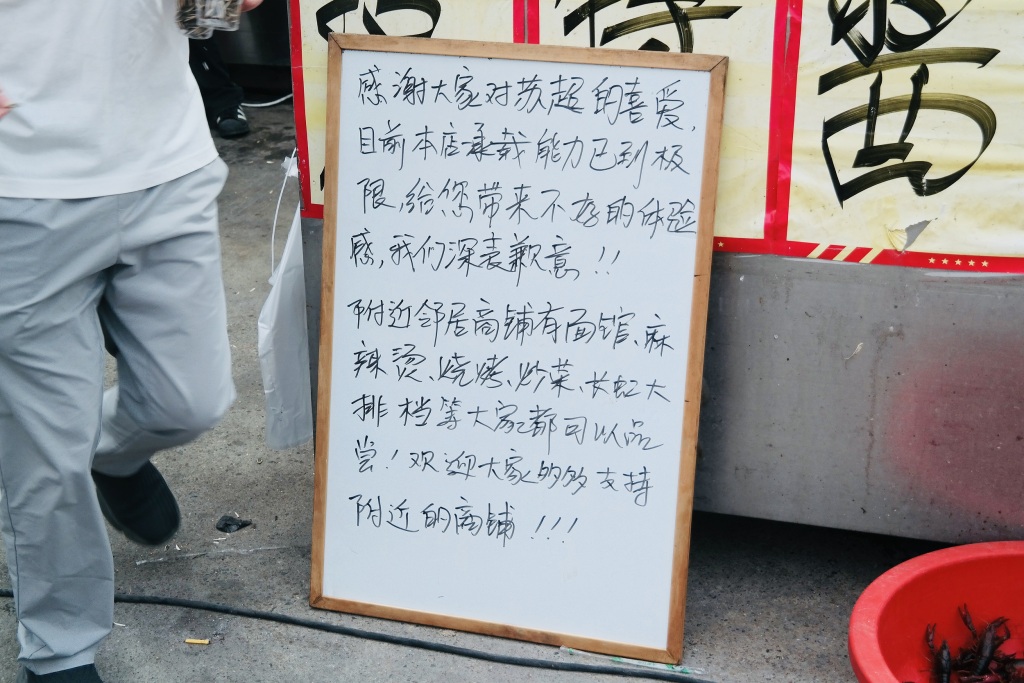 感谢大家对苏超的喜爱,
目前本店承载能力已到极
限,给您带来不好的体验
感,我们深表歉意!!
附近邻居商铺有面馆、麻
辣烫、烧烤、炒菜、长虹大
排档等大家都可以品
尝!欢迎大家多多支持
附近的商铺!!!